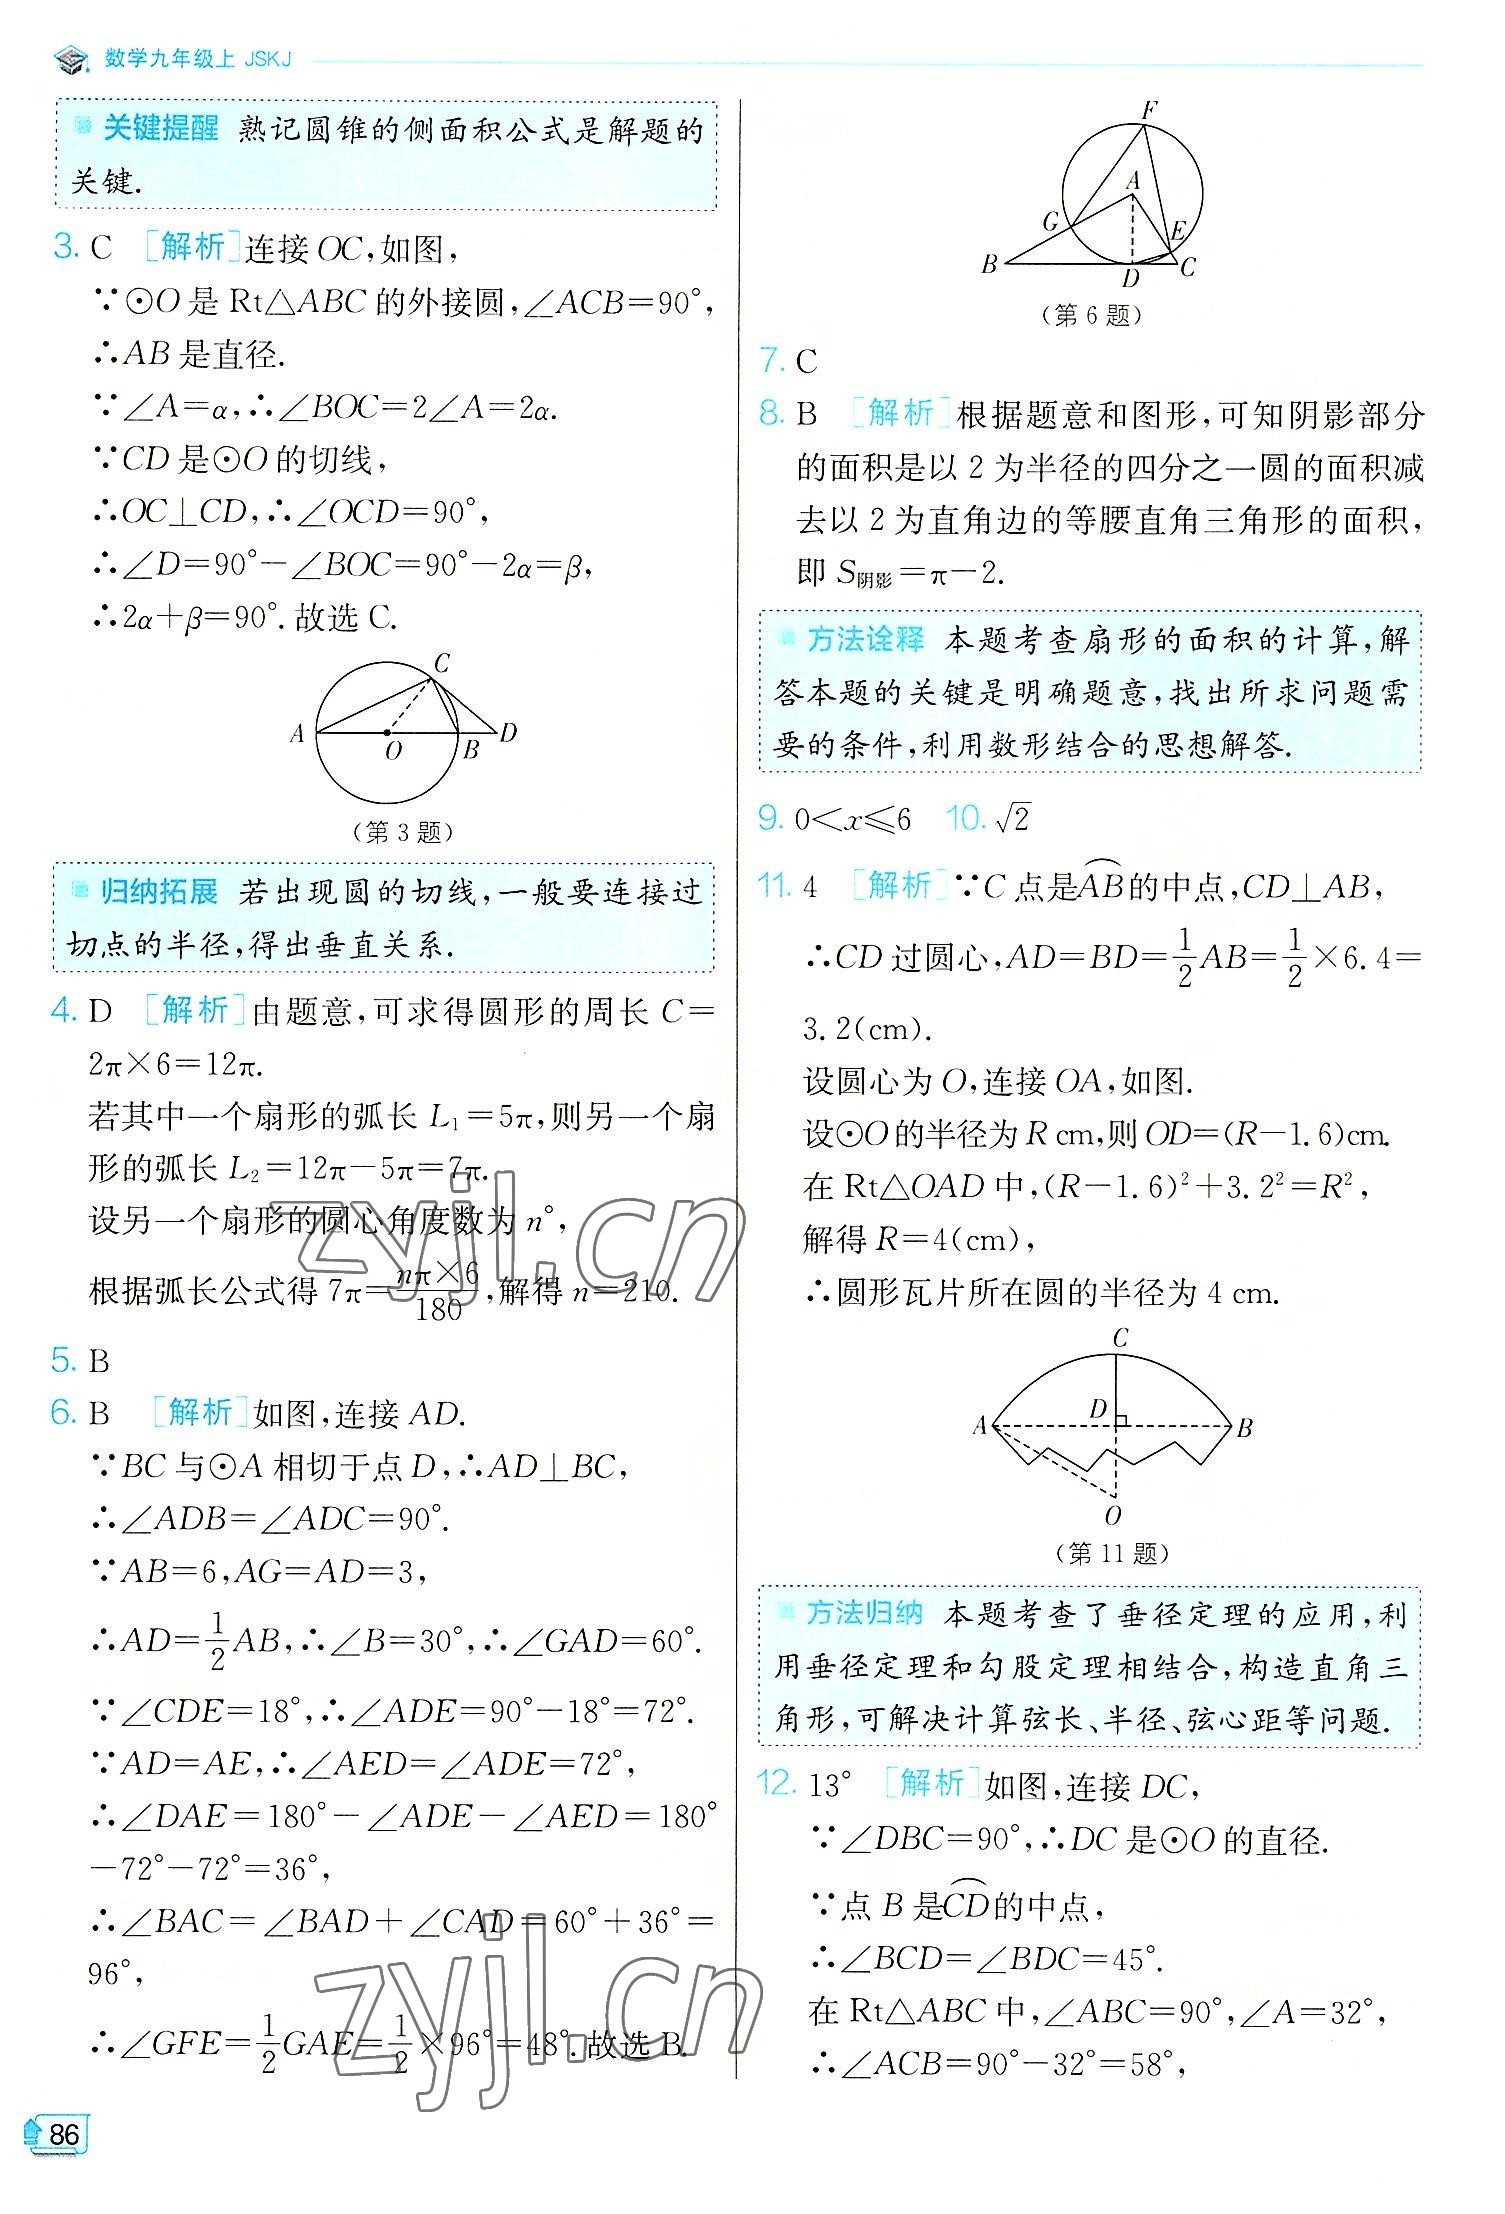 数学九年级上 JSKJ
关键提醒 熟记圆锥的侧面积公式是解题的
关键.
3. C [解析]连接 OC,如图,
∵⊙O 是 Rt△ABC 的外接圆,∠ACB=90°,
∴AB 是直径.
∵∠A=α,∴∠BOC=2∠A=2α.
∵CD 是⊙O 的切线,
∴OC⊥CD,∴∠OCD=90°,
∴∠D=90°-∠BOC=90°-2α=β,
∴2α+β=90°.故选 C.
C
A
O
B
D
(第 3 题)
归纳拓展 若出现圆的切线,一般要连接过
切点的半径,得出垂直关系.
4. D [解析]由题意,可求得圆形的周长 C=
2π×6=12π.
若其中一个扇形的弧长 L₁=5π,则另一个扇
形的弧长 L₂=12π-5π=7π.
设另一个扇形的圆心角度数为 n°,
根据弧长公式得 7π=nπ×6/180,解得 n=210.
5. B
6. B [解析]如图,连接 AD.
∵BC 与⊙A 相切于点 D,∴AD⊥BC,
∴∠ADB=∠ADC=90°.
∵AB=6,AG=AD=3,
∴AD=1/2AB,∴∠B=30°,∴∠GAD=60°.
∵∠CDE=18°,∴∠ADE=90°-18°=72°.
∵AD=AE,∴∠AED=∠ADE=72°,
∴∠DAE=180°-∠ADE-∠AED=180°
-72°-72°=36°,
∴∠BAC=∠BAD+∠CAD=60°+36°=
96°,
∴∠GFE=1/2GAE=1/2×96°=48°.故选 B.
86
F
A
G
E
B
D
C
(第 6 题)
7. C
8. B [解析]根据题意和图形,可知阴影部分
的面积是以 2 为半径的四分之一圆的面积减
去以 2 为直角边的等腰直角三角形的面积,
即 S阴影=π-2.
方法诠释 本题考查扇形的面积的计算,解
答本题的关键是明确题意,找出所求问题需
要的条件,利用数形结合的思想解答.
9. 0<x≤6 10. √2
11. 4 [解析]∵C 点是A͡B的中点,CD⊥AB,
∴CD 过圆心,AD=BD=1/2AB=1/2×6.4=
3.2(cm).
设圆心为 O,连接 OA,如图.
设⊙O 的半径为 R cm,则 OD=(R-1.6)cm.
在 Rt△OAD 中,(R-1.6)²+3.2²=R²,
解得 R=4(cm),
∴圆形瓦片所在圆的半径为 4 cm.
C
A
D
B
O
(第 11 题)
方法归纳 本题考查了垂径定理的应用,利
用垂径定理和勾股定理相结合,构造直角三
角形,可解决计算弦长、半径、弦心距等问题.
12. 13° [解析]如图,连接 DC,
∵∠DBC=90°,∴DC 是⊙O 的直径.
∵点 B 是C͡D的中点,
∴∠BCD=∠BDC=45°.
在 Rt△ABC 中,∠ABC=90°,∠A=32°,
∴∠ACB=90°-32°=58°,
zyjl.cn
zyjl.cn